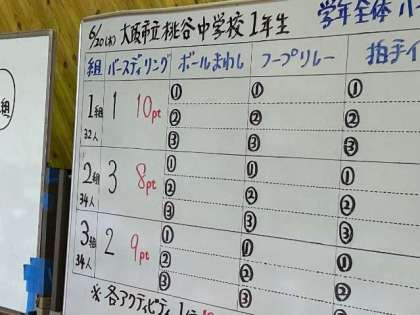 6/20(木) 大阪市立桃谷中学校1年生 学年全体
組 バースディリング ボールまわし フープリレー 拍手
1組 1 10pt ① ① ①
32人 ② ② ②
③ ③ ③
2組 3 8pt ① ① ①
34人 ② ② ②
③ ③ ③
3組 2 9pt ① ① ①
34人 ② ② ②
③ ③ ③
※ 各アクティビティ 1
組